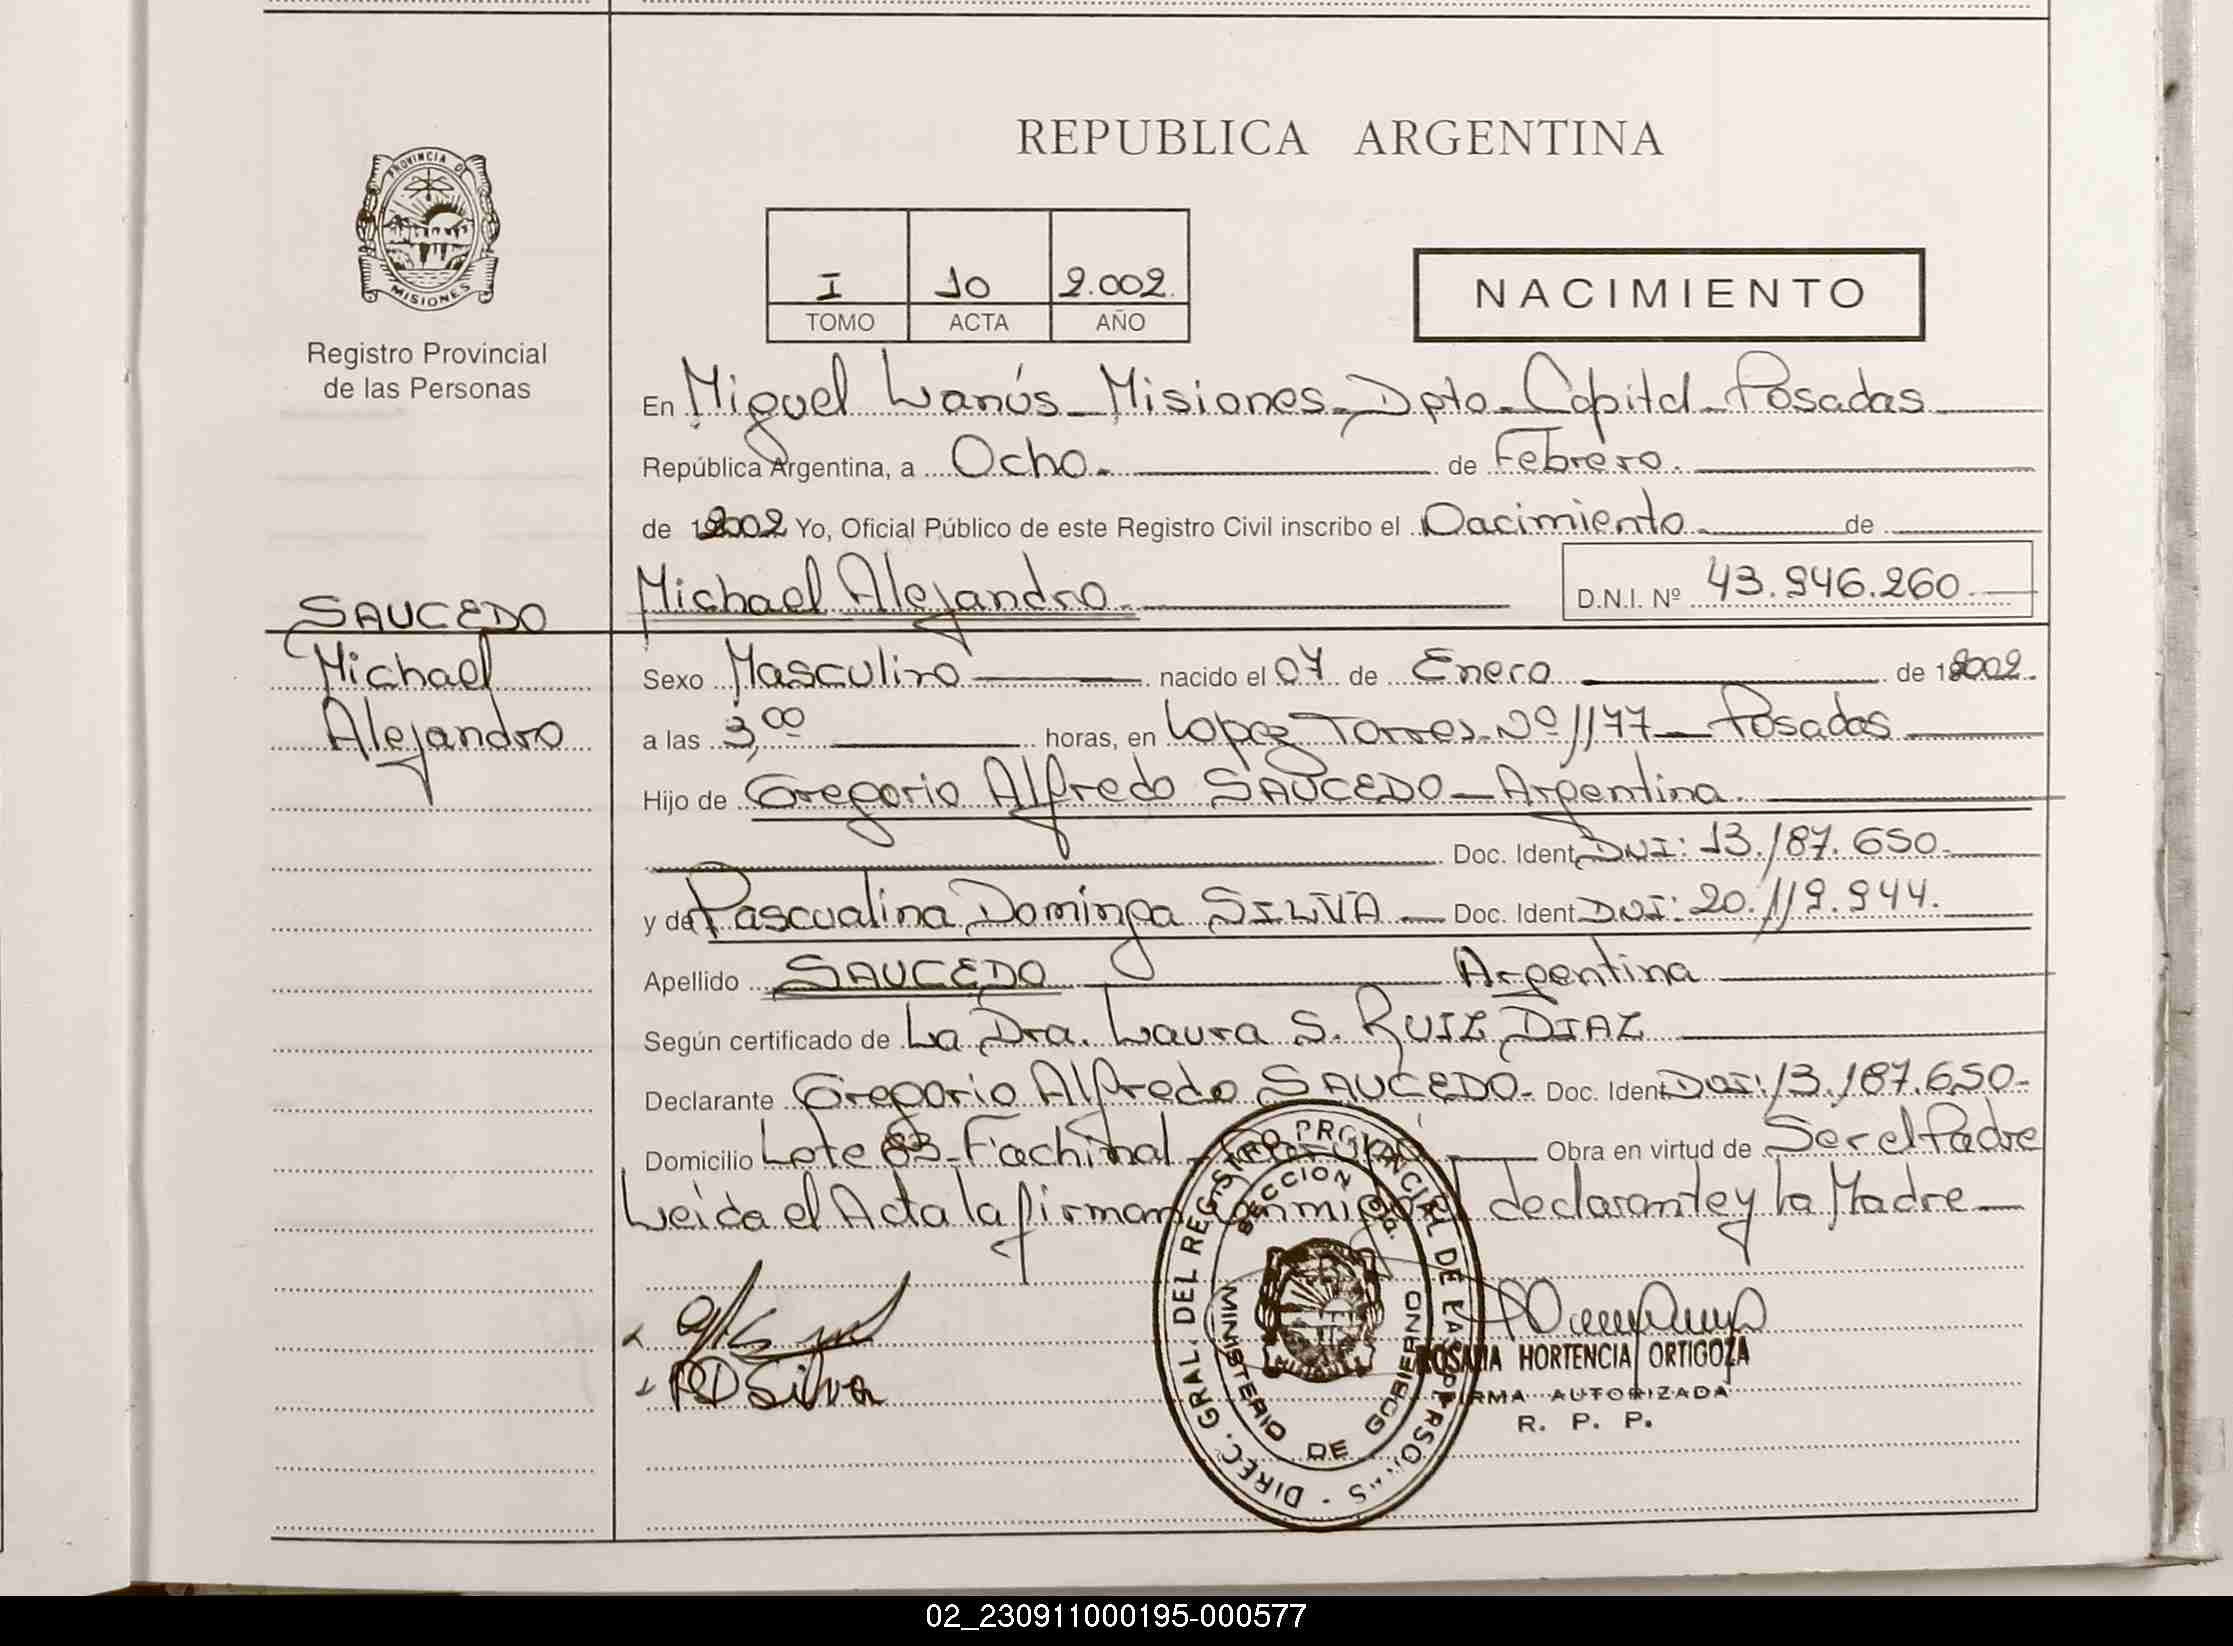 REPUBLICA ARGENTINA
PROVINCIA DE
MISIONES
Registro Provincial
de las Personas
I 10 2.002.
TOMO ACTA AÑO
NACIMIENTO
En Miguel Lanús - Misiones - Dpto - Capital - Posadas
República Argentina, a Ocho. de Febrero.
de 2002 Yo, Oficial Público de este Registro Civil inscribo el Nacimiento de
Michael Alejandro. D.N.I. Nº 43.946.260
SAUCEDO
Michael
Alejandro
Sexo Masculino nacido el 07 de Enero de 2002.
a las 3,00 horas, en Lopez Torres Nº 1177 - Posadas
Hijo de Gregorio Alfredo SAUCEDO - Argentina.
Doc. Ident. DNI: 13.187.650.
y de Pascualina Dominga SILVA - Doc. Ident. DNI: 20.119.944.
Apellido SAUCEDO Argentina
Según certificado de La Dra. Laura S. RUIZ DIAZ
Declarante Gregorio Alfredo SAUCEDO - Doc. Ident. DNI: 13.187.650-
Domicilio Lote 83 - Fachinal - Obra en virtud de Ser el Padre
Leida el Acta la firman conmigo el declarante y la Madre
PD Silva
DIREC. GRAL. DEL REGISTRO PROVINCIAL DE LAS PERSONAS
MINISTERIO DE GOBIERNO
SECCION
MISIONES
ROSANA HORTENCIA ORTIGOZA
FIRMA AUTORIZADA
R. P. P.
02_230911000195-000577